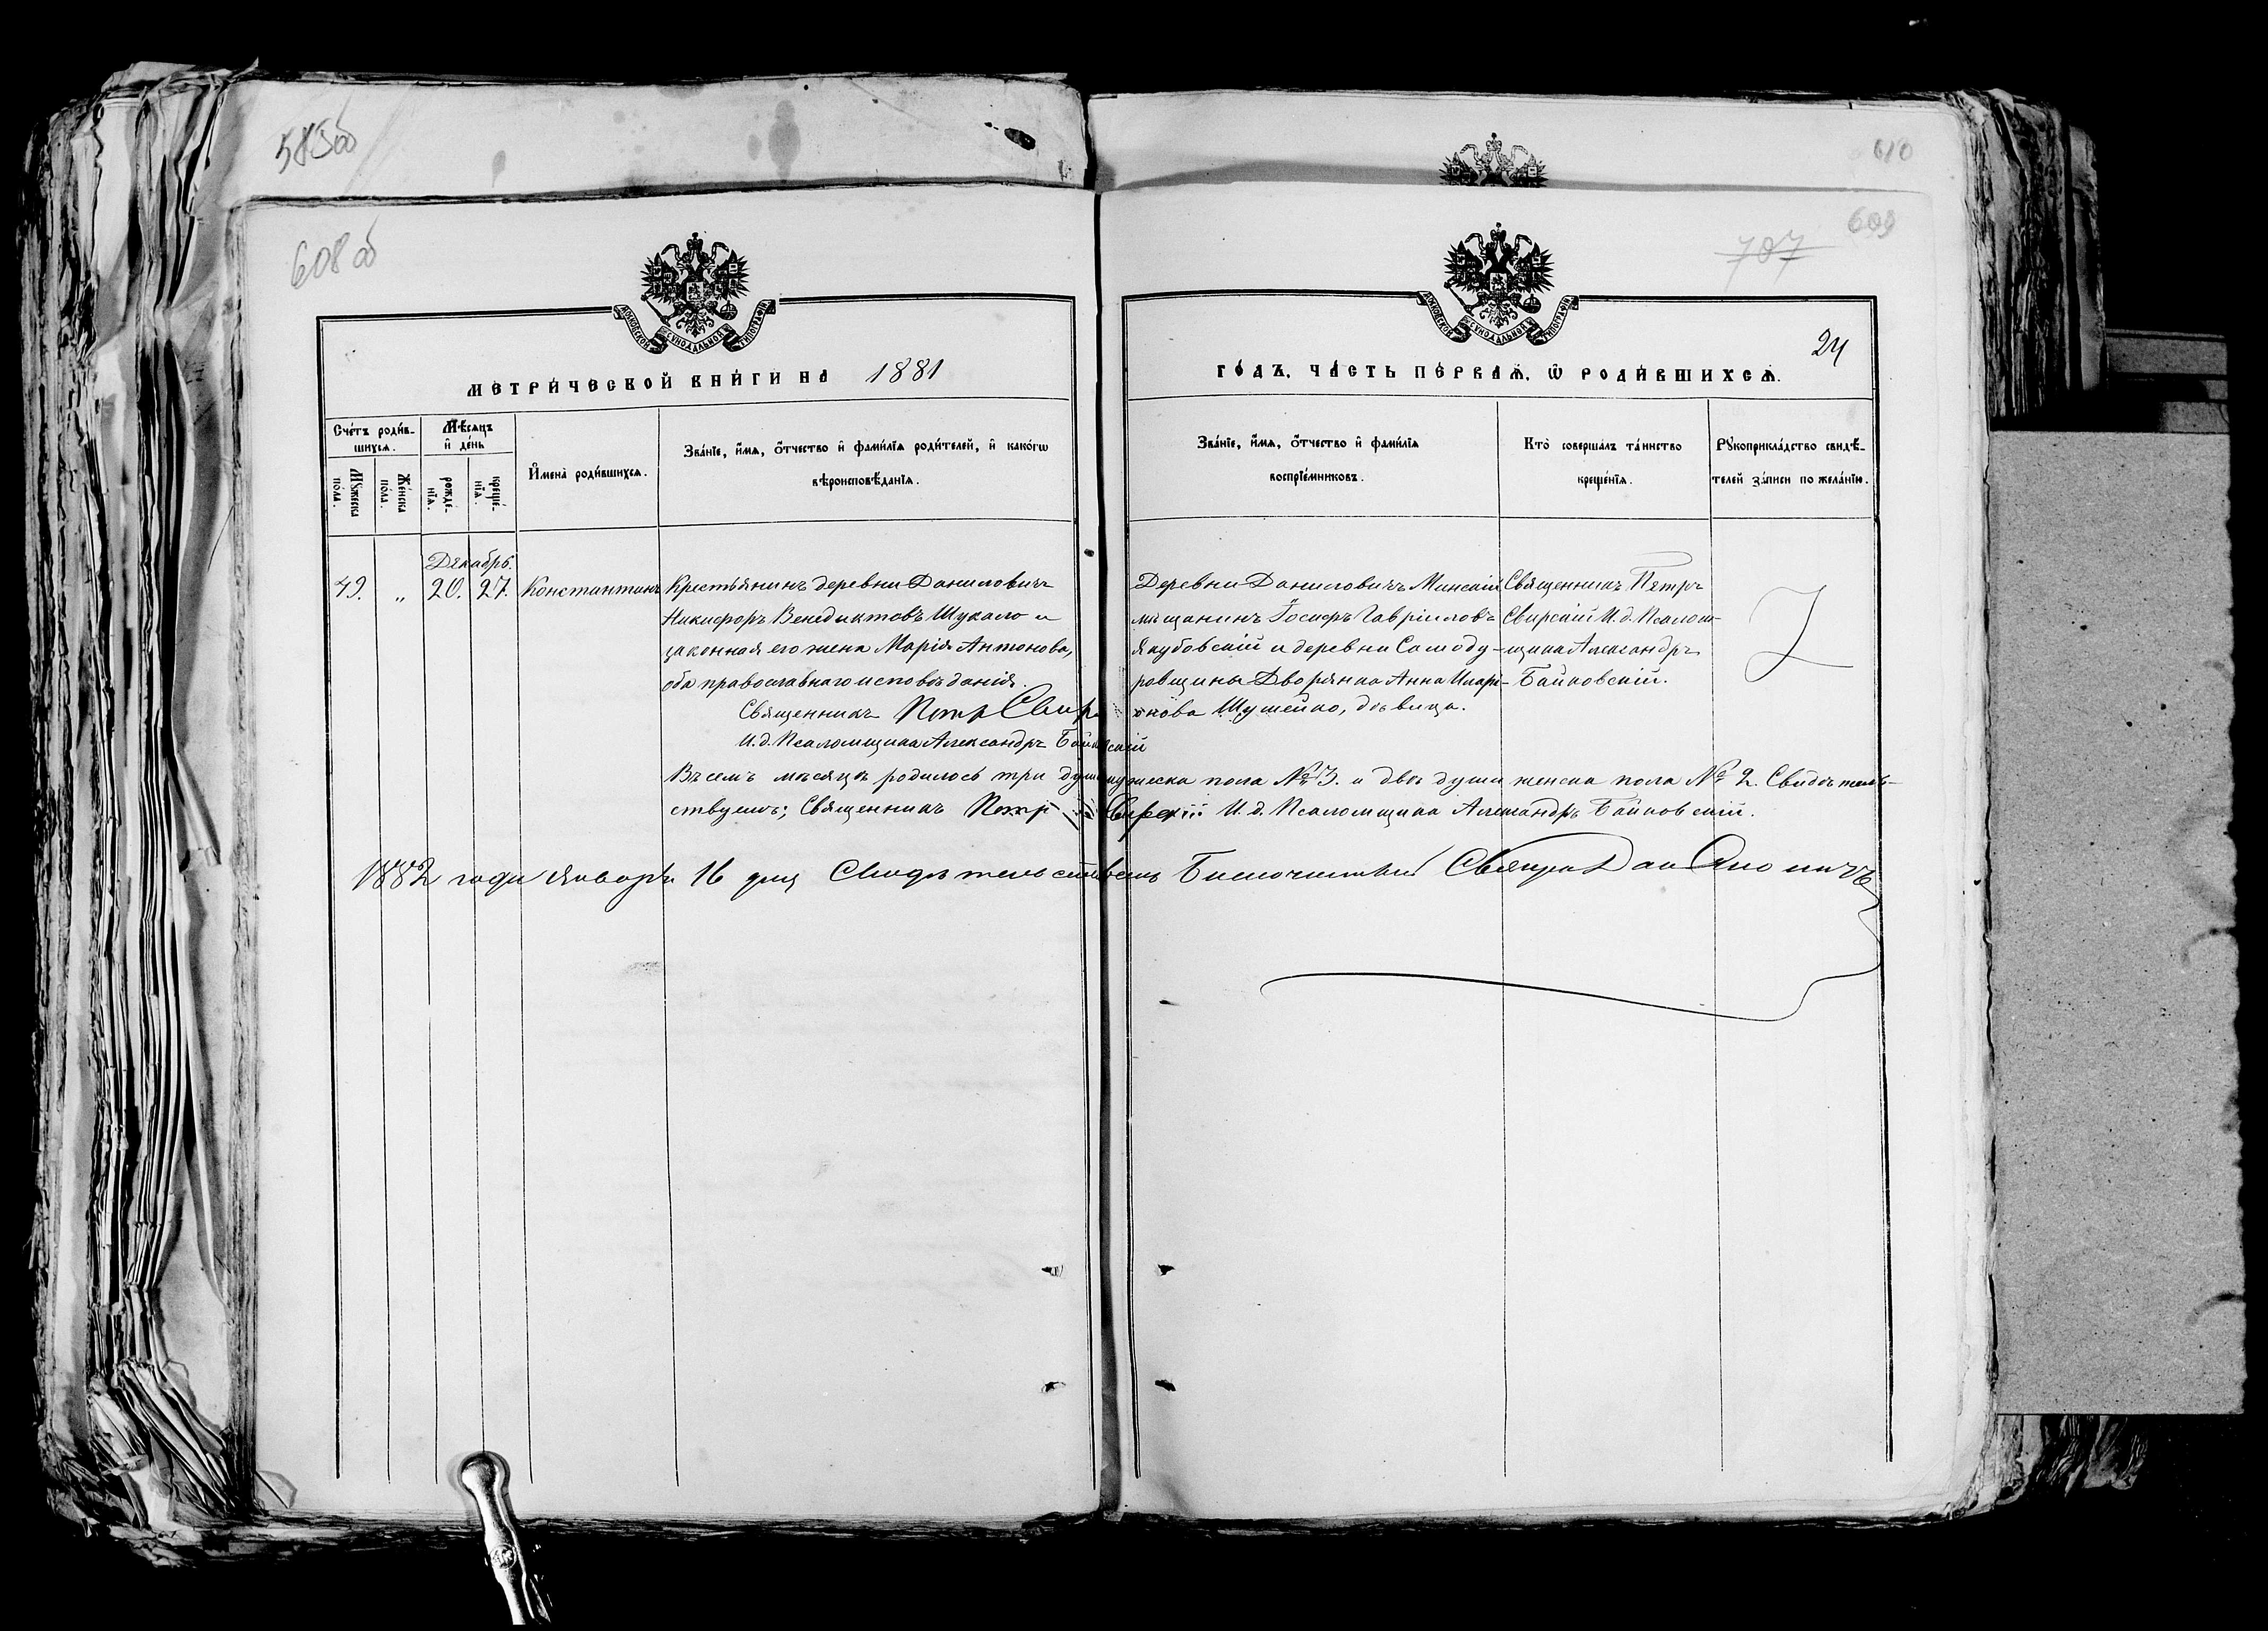 583об
610
608об
609
707
24
МОСКОВСКОЙ СѴНОДАЛЬНОЙ ТИПОГРАФІИ
МОСКОВСКОЙ СѴНОДАЛЬНОЙ ТИПОГРАФІИ
МЕТРИ́ЧЕСКОЙ КНИ́ГИ НА 1881
ГО́ДЪ, ЧА́СТЬ ПЕ́РВАѦ, Ѡ҆ РОДИ́ВШИХСѦ.
Сче́тъ роди́в-
шихсѧ.
Мꙋ́жеска по́ла.
Же́нска по́ла.
Мѣ́сѧцъ
и҆ де́нь
рожде́-
нїѧ.
креще́-
нїѧ.
И҆мена̀ роди́вшихсѧ.
Зва́нїе, и҆́мѧ, ѻ҆́тчество и҆ фами́лїѧ роди́телей, и҆ како́гѡ
вѣроисповѣ́данїѧ.
Зва́нїе, и҆́мѧ, ѻ҆́тчество и҆ фами́лїѧ
воспрїе́мниковъ.
Кто̀ соверша́лъ та́инство
креще́нїѧ.
Рꙋкоприкла́дство свидѣ́-
телей за́писи по жела́нїю.
Декабрь.
49. „ 20. 27. Константинъ
Крестьянинъ деревни Даниловичъ
Никифоръ Венедиктовъ Шукало и
законная его жена Марія Антонова,
оба православнаго исповѣданія.
Священникъ Петръ Свир
И. д. Псаломщика Александръ Байковскій
Деревни Даниловичъ Минскій
мѣщанинъ Іосифъ Гавріиловъ
Якубовскій и деревни Самоду-
ровщины Дворянка Анна Илари-
онова Шумейко, дѣвица.
Священникъ Петръ
Свирскій И. д. Псалом-
щика Александръ
Байковскій.
Въ семъ мѣсяцѣ родилось три души мужеска пола № 3. и двѣ души женска пола № 2. Свидѣтель-
ствуемъ; Священникъ Петръ Свирскій И. д. Псаломщика Александръ Байковскій.
1882 года Января 16 дня Свидѣтельствовалъ Благочинный Священ